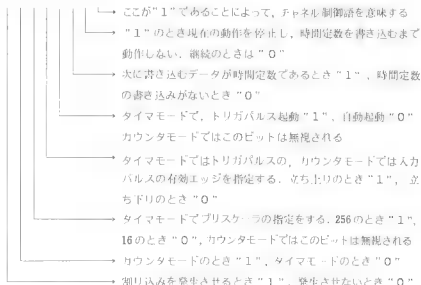 ここが"1"であることによって,チャネル制御語を意味する
"1"のとき現在の動作を停止し,時間定数を書き込むまで
動作しない.継続のときは"0"
次に書き込むデータが時間定数であるとき"1",時間定数
の書き込みがないとき"0"
タイマモードで,トリガパルス起動"1",自動起動"0"
カウンタモードではこのビットは無視される
タイマモードではトリガパルスの,カウンタモードでは入力
パルスの有効エッジを指定する.立ち上りのとき"1",立
ち下りのとき"0"
タイマモードでプリスケーラの指定をする.256のとき"1",
16のとき"0",カウンタモードではこのビットは無視される
カウンタモードのとき"1",タイマモードのとき"0"
割り込みを発生させるとき"1",発生させないとき"0"